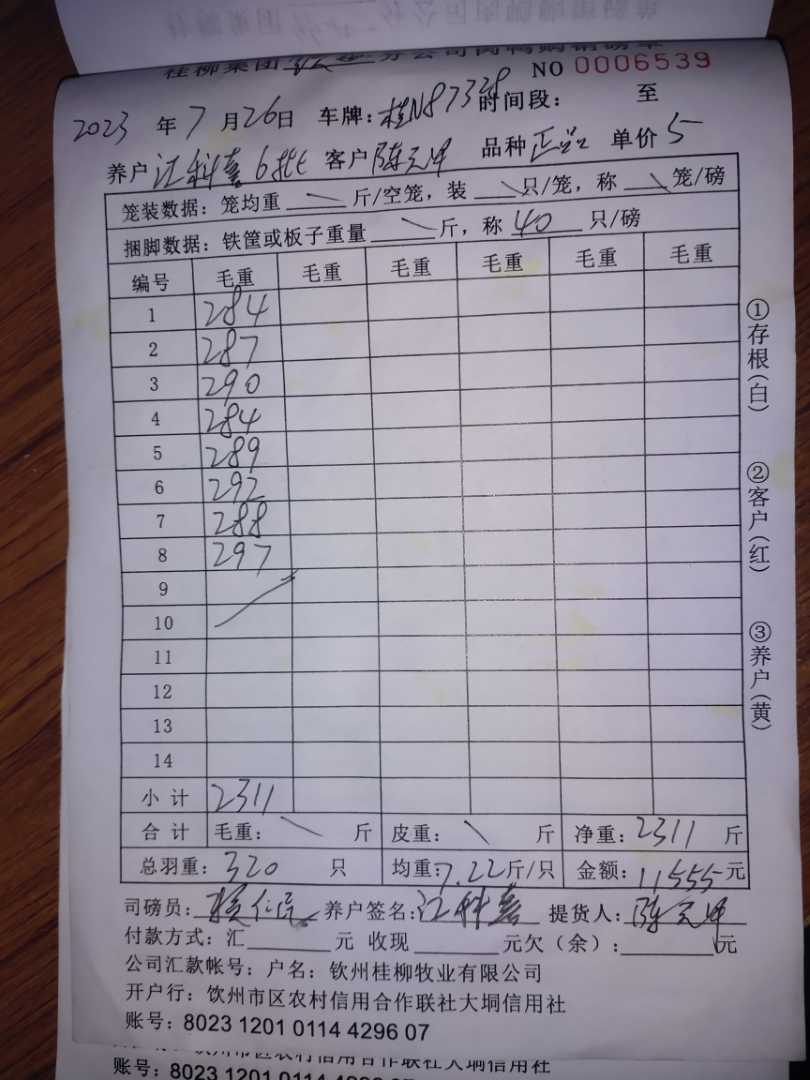 桂柳集团 分公司肉鸭购销磅单
NO 0006539
2023 年 7 月 26 日 车牌：桂N87328 时间段： 至
养户 江科喜 6批 客户 陈元坤 品种 正品 单价 5
笼装数据：笼均重 斤/空笼，装 只/笼，称 笼/磅
捆脚数据：铁筐或板子重量 斤，称 40 只/磅
编号 毛重 毛重 毛重 毛重 毛重 毛重
1 284
2 287
3 290
4 284
5 289
6 292
7 288
8 297
9
10
11
12
13
14
小计 2311
合计 毛重： 斤 皮重： 斤 净重：2311 斤
总羽重：320 只 均重：7.22 斤/只 金额：11555 元
司磅员： 养户签名：江科喜 提货人：陈元坤
付款方式：汇 元 收现 元欠（余）： 元
公司汇款帐号：户名：钦州桂柳牧业有限公司
开户行：饮州市区农村信用合作联社大垌信用社
账号：8023 1201 0114 4296 07
①存根（白）
②客户（红）
③养户（黄）
账号：8023 1201 0114 4296 07